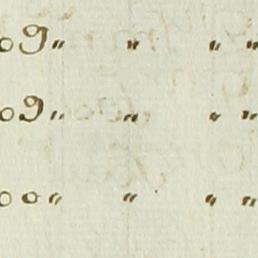 09 " " " "
09 " " " "
00 " " " "